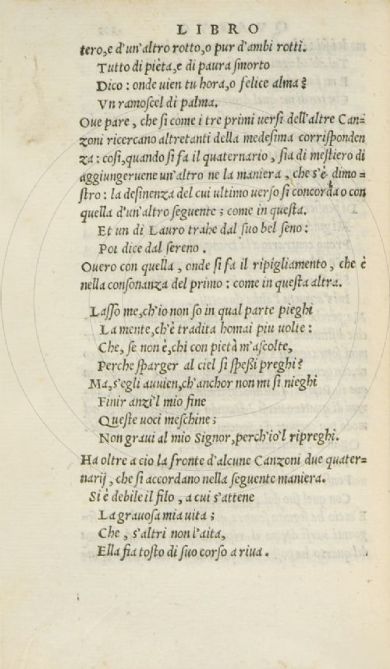 LIBRO
tero, e d'un'altro rotto, o pur d'ambi rotti.
Tutto di pieta, e di paura smorto
Dico: onde uien tu hora, o felice alma?
Vn ramoscel di palma.
Oue pare, che si come i tre primi uersi dell'altre Can-
zoni ricercano altretanti della medesima corrisponden
za: così, quando si fa il quaternario, sia di mestiero di
aggiungeruene un'altro ne la maniera, che s'è dimo-
stro: la desinenza del cui ultimo uerso si concorda o con
quella d'un'altro seguente; come in questa.
Et un di Lauro trahe dal suo bel seno:
Poi dice dal sereno.
Ouero con quella, onde si fa il ripigliamento, che è
nella consonanza del primo: come in questa altra.
Lasso me, ch'io non so in qual parte pieghi
La mente, ch'è tradita homai piu uolte:
Che, se non è, chi con pietà m'ascolte,
Perche sparger al ciel si spessi preghi?
Ma, s'egli auuien, ch'anchor non mi si nieghi
Finir anzi'l mio fine
Queste uoci meschine;
Non graui al mio Signor, perch'io'l ripreghi.
Ha oltre a cio la fronte d'alcune Canzoni due quater-
narij, che si accordano nella seguente maniera.
Si è debile il filo, a cui s'attene
La grauosa mia uita;
Che, s'altri non l'aita,
Ella fia tosto di suo corso a riua.